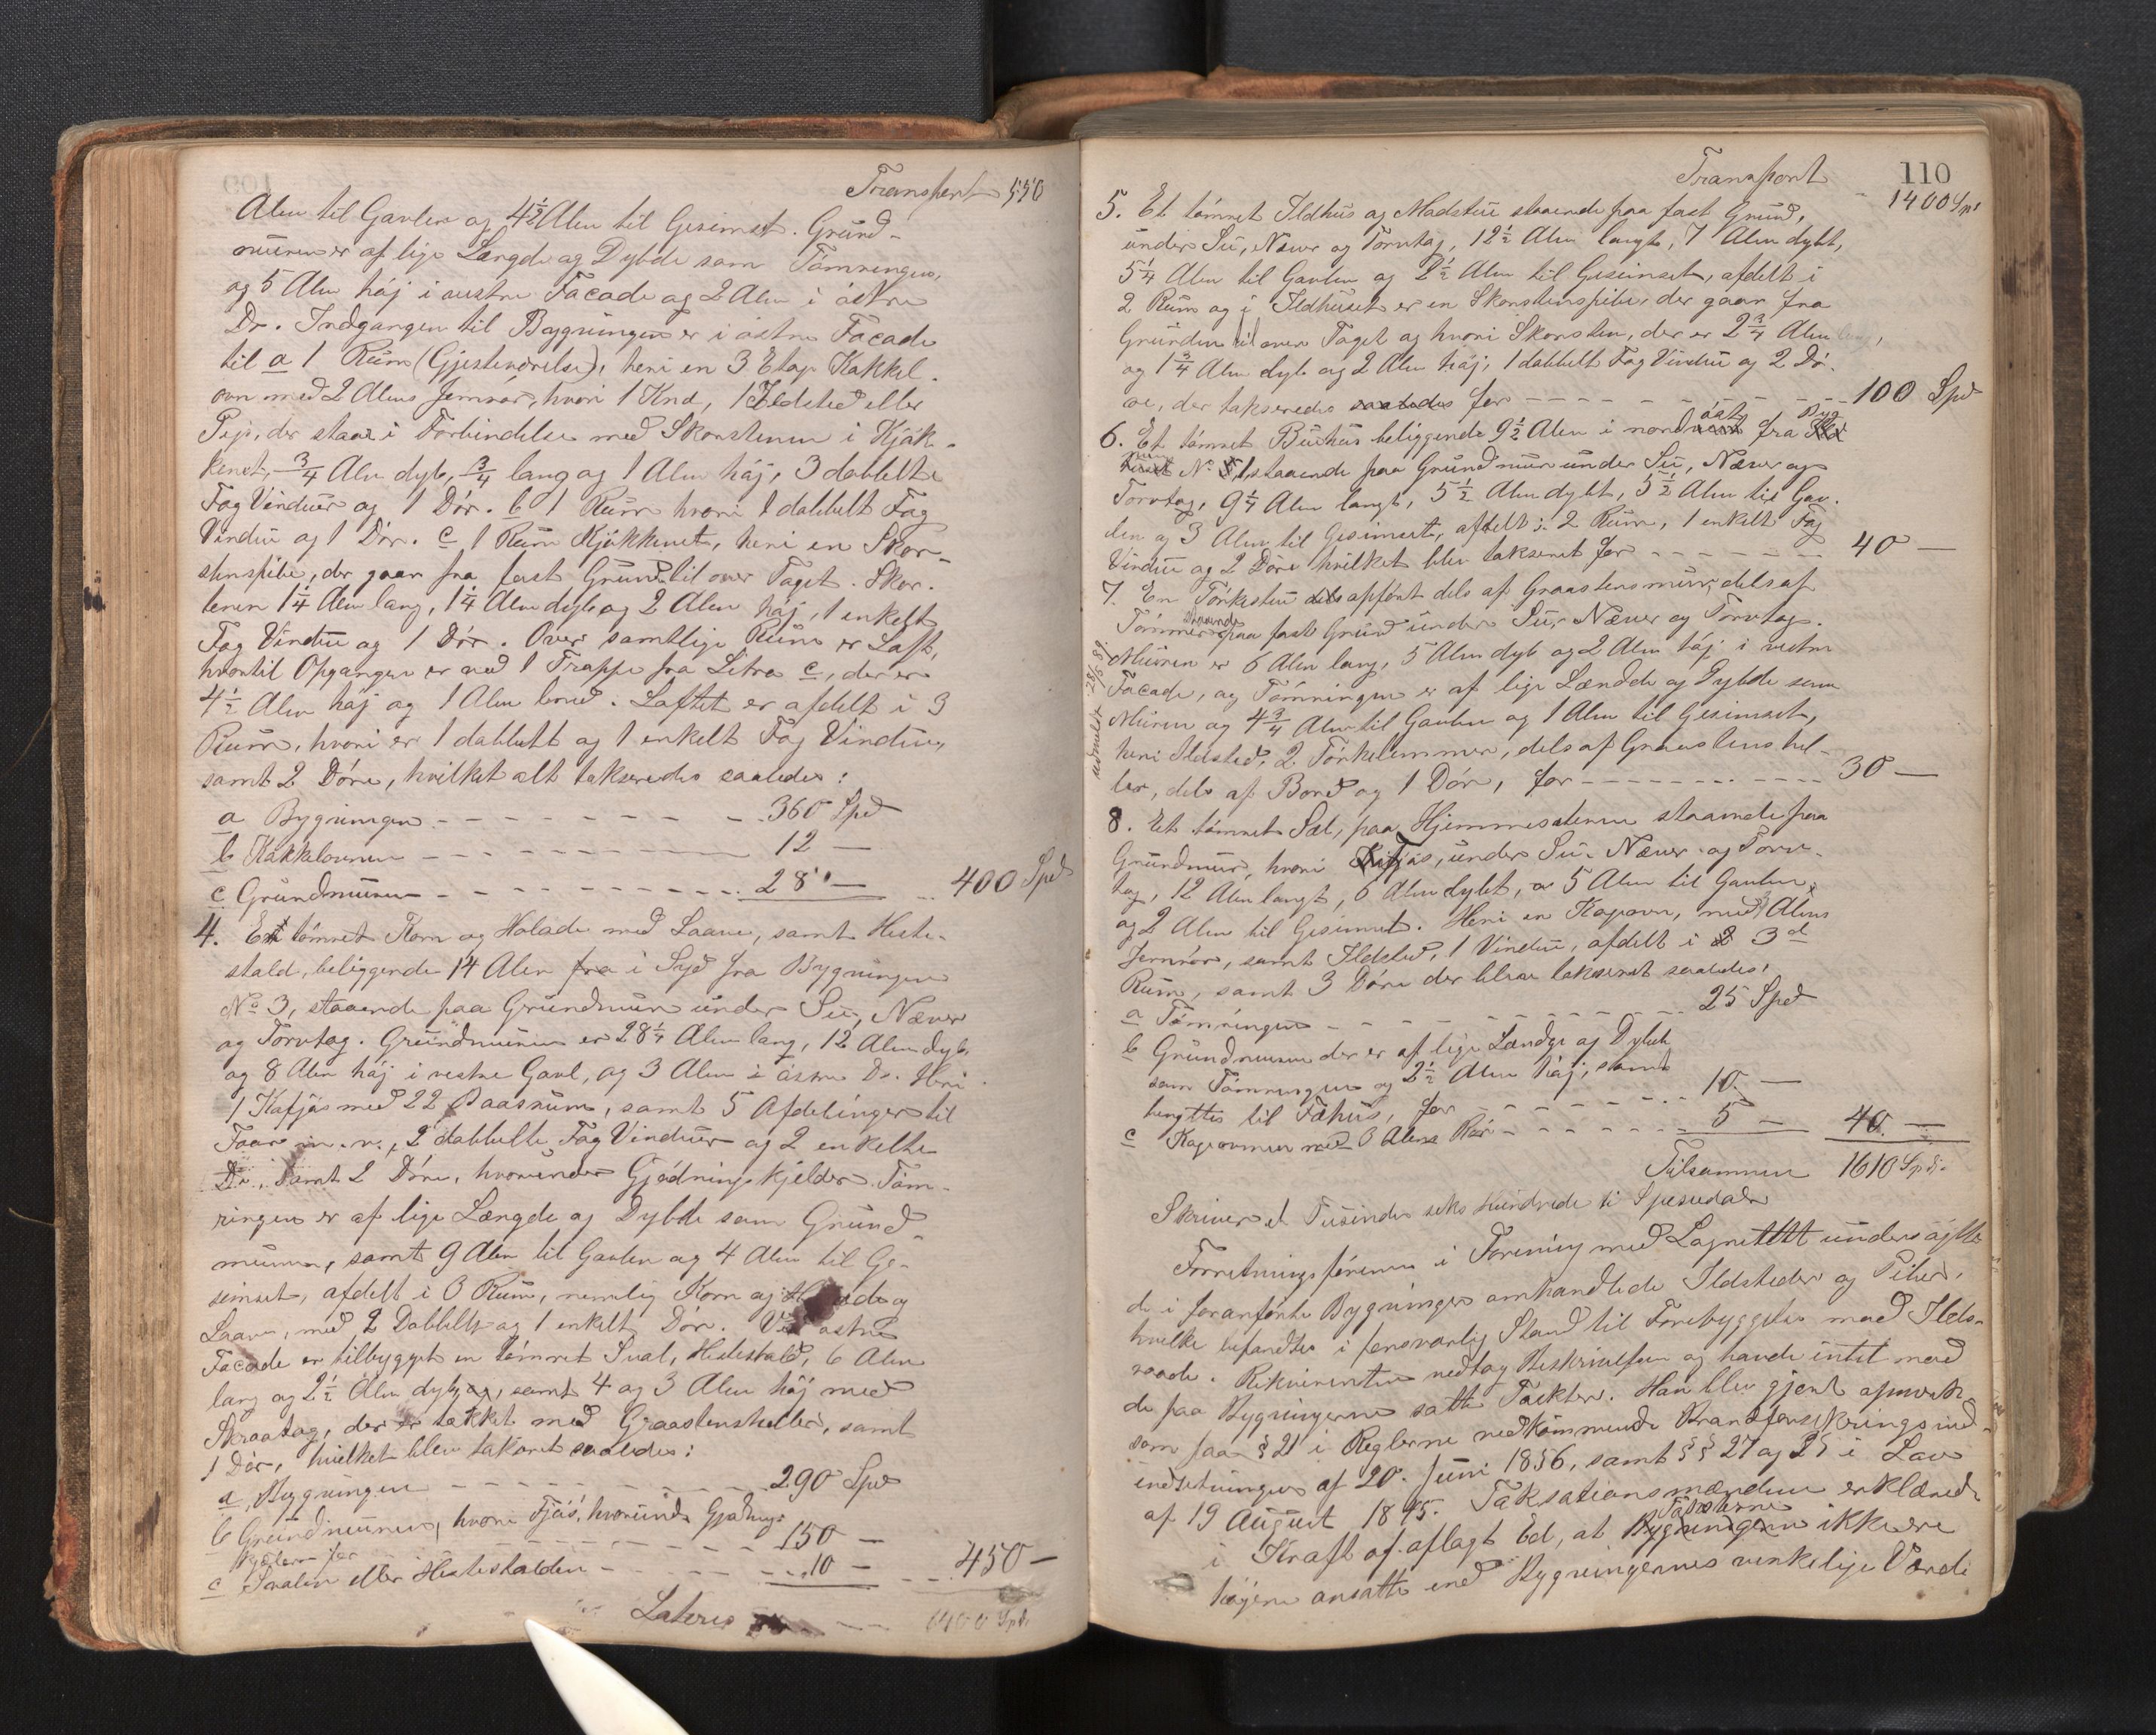 Transport 550
Alen til Gavlen og 4½ Alen til Gesimset. Grund-
muren er af lige Længde og Dybde som Tømringen,
og 5 Alen høj i vestre Facade og 2 Alen i østre
Do. Indgangen til Bygningen er i østre Facade
til a 1 Rum (Gjesteværelse), heri en 3 Etag Kakkel-
ovn med 2 Alens Jernrør, hvori 1 Knæ, 1 Ildsted eller
Pejs, der staar i Forbindelse med Skorstenen i Kjøk-
kenet, ¾ Alen dyb, ¾ lang og 1 Alen høj, 3 dobbelte
Fag Vinduer og 1 Dør. b 1 Rum hvori 1 dobbelt Fag
Vindue og 1 Dør. c 1 Rum Kjøkkenet, heri en Skor-
stenspibe, der gaar fra fast Grund til over Taget. Skor-
stenen 1¼ Alen lang, 1¼ Alen dyb og 2 Alen høj, 1 enkelt
Fag Vindue og 1 Dør. Over samtlige Rum er Loft,
hvortil Opgangen er ved 1 Trappe fra Litra c, der er
4½ Alen høj og 1 Alen bred. Loftet er afdelt i 3
Rum, hvori er 1 dobbelt og 1 enkelt Fag Vindue,
samt 2 Døre, hvilket alt takseredes saaledes:
a Bygningen - - - 360 Spd
b Kakkelovnen - - - 12 —
c Grundmuren - - - 28 — 400 Spd
4. Et tømret Korn og Holade med Laave, samt Heste-
stald, beliggende 14 Alen fra i Syd fra Bygningen
No 3, staaende paa Grundmur under Su, Næver
og Torvtag. Grundmuren er 28¼ Alen lang, 12 Alen dyb
og 8 Alen høj i vestre Gavl, og 3 Alen i østre Do. Heri
1 Kofjøs med 22 Baasrum, samt 5 Afdelinger til
Faar m. v., 2 dobbelte Fag Vinduer og 2 enkelte
Do, samt 2 Døre, hvorunder Gjødningskjelder. Tøm-
ringen er af lige Længde og Dybde som Grund-
muren, samt 9 Alen til Gavlen og 4 Alen til Ge-
simset, afdelt i 3 Rum, nemlig Korn og Holade og
Laave, med 2 Dobbelte og 1 enkelt Dør. Ved østre
Facade er tilbygget en tømret Sval, Hestestald, 6 Alen
lang og 2½ Alen dyb, og, samt 4 og 3 Alen høj med
Skraatag, der er tækket med Graastensheller, samt
1 Dør, hvilket blev takseret saaledes:
a, Bygningen - - - 290 Spd
b Grundmuren, hvori Fjøs, hvorunder Gjødnings-
kjelder for - - - 150 —
c Svalen eller Hestestalden - - - 10 — 450 —
Lateris - - - 1400 Spd.
110
Transport
1400 Spd
5. Et tømret Ildhus og Madstue staaende paa fast Grund,
under Su, Næver og Torvtag, 12½ Alen langt, 7 Alen dybt,
5¼ Alen til Gavlen og 2½ Alen til Gesimset, afdelt i
2 Rum og i Ildhuset er en Skorstenspibe, der gaar fra
Grunden til over Taget og hvori Skorsten, der er 2¾ Alen lang,
og 1¾ Alen dyb og 2 Alen høj, 1 dobbelt Fag Vindue og 2 Dø-
re, der takseredes saaledes for - - - 100 Spd
6. Et tømret Buhus beliggende 9½ Alen i nordøst fra Byg
ningen No 1, staaende paa Grundmur under Su, Næver og
Torvtag, 9¼ Alen langt, 5½ Alen dybt, 5½ Alen til Gav-
len og 3 Alen til Gesimset, afdelt i 2 Rum, 1 enkelt Fag
Vindue og 2 Døre hvilket blev takseret for - - - 40 —
7. En Tørkestue dels opført dels af Graastensmur, dels af
Tømmer staaende paa fast Grund under Su, Næver og Torvtag.
Muren er 6 Alen lang, 5 Alen dyb og 2 Alen høj i vestre
Facade, og Tømringen er af lige Længde og Dybde som
Muren og 4¾ Alen til Gavlen og 1 Alen til Gesimset,
heri Ildsted, 2 Tørkelemmer, dels af Graastenshel-
ler, dels af Bord og 1 Dør, for - - - 30 —
udmeldt 28/5 89
8. Et tømret Sel, paa Hjemmestølen staaende paa
Grundmur, hvori Fjøs, under Su, Næver og Torv-
tag, 12 Alen langt, 6 Alen dybt, 5 Alen til Gavlen,
og 2 Alen til Gesimset. Heri en Kogeovn, med Alens
Jernrør, samt Ildsted, 1 Vindue, afdelt i 3
Rum, samt 3 Døre der blev takseret saaledes,
a Tømringen - - - 25 Spd
b Grundmuren der er af lige Længde og Dybde
som Tømringen og 2½ Alen høj, samt
benyttes til Fæhus, for - - - 10 —
c Kogeovnen med 3 Alens Rør - - - 5 — 40 —
Tilsammen 1610 Spd.
Skriver et Tusinde seks Hundrede ti Speciedaler
Forretningsføreren i Forening med Lagrettet undersøgte
de i foranførte Bygninger omhandlede Ildsteder og Piber,
hvilke befandtes i forsvarlig Stand til Forebyggelse mod Ilds-
vaade. Rekvirenten vedtog Beskrivelsen og havde intet mod
de paa Bygningerne satte Takster. Han blev gjort opmerk-
som paa § 21 i Reglerne vedkommende Brandforsikringsind-
indretningen af 20. Juni 1856, samt §§ 27 og 25 i Lov
af 19 August 1845. Taksationsmændene erklærede
i Kraft af aflagt Ed, at Taksterne Bygningerne ikke ere
højere ansatte end Bygningernes virkelige Værdi